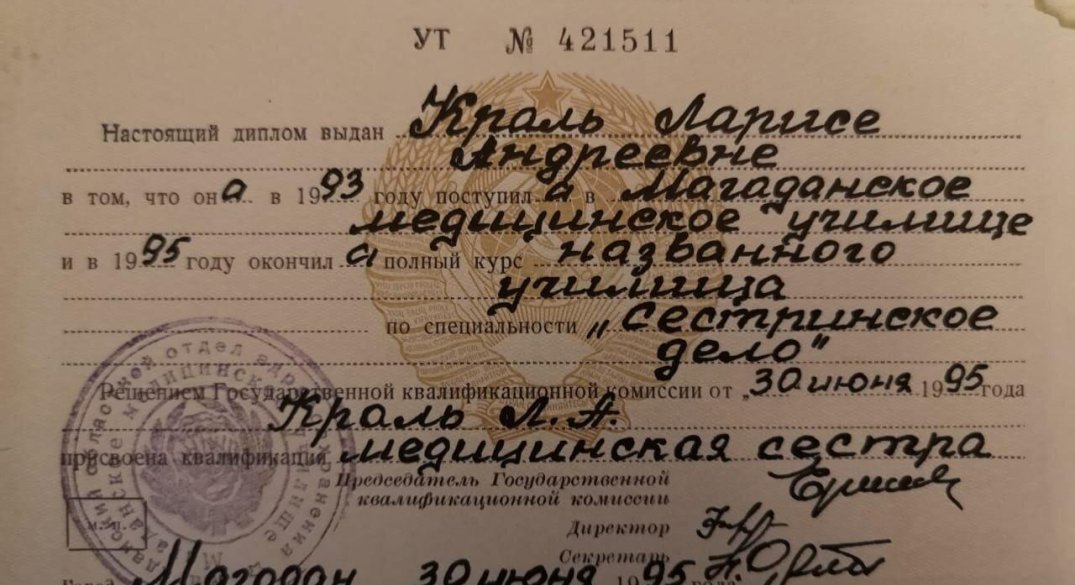 УТ № 421511
Настоящий диплом выдан Краль Ларисе
Андреевне
в том, что она в 1993 году поступила в Магаданское
медицинское училище
и в 1995 году окончила полный курс названного
училища
по специальности „Сестринское
дело"
Решением Государственной квалификационной комиссии от „30 июня 1995 года
Краль Л.А.
присвоена квалификация медицинская сестра
Председатель Государственной
квалификационной комиссии
Директор
Секретарь
Город Магадан 30 июня 1995 года